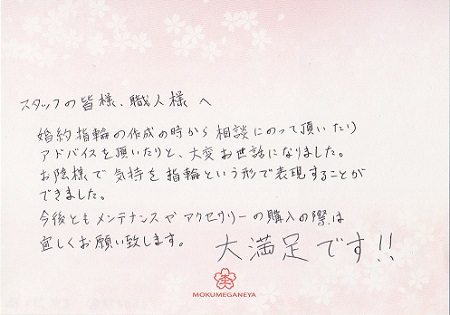 スタッフの皆様、職人様へ
婚約指輪の作成の時から相談にのって頂いたり
アドバイスを頂いたりと、大変お世話になりました。
お陰様で気持を指輪という形で表現することが
できました。
今後ともメンテナンスやアクセサリーの購入の際は
宜しくお願い致します。
大満足です!!
MOKUMEGANEYA